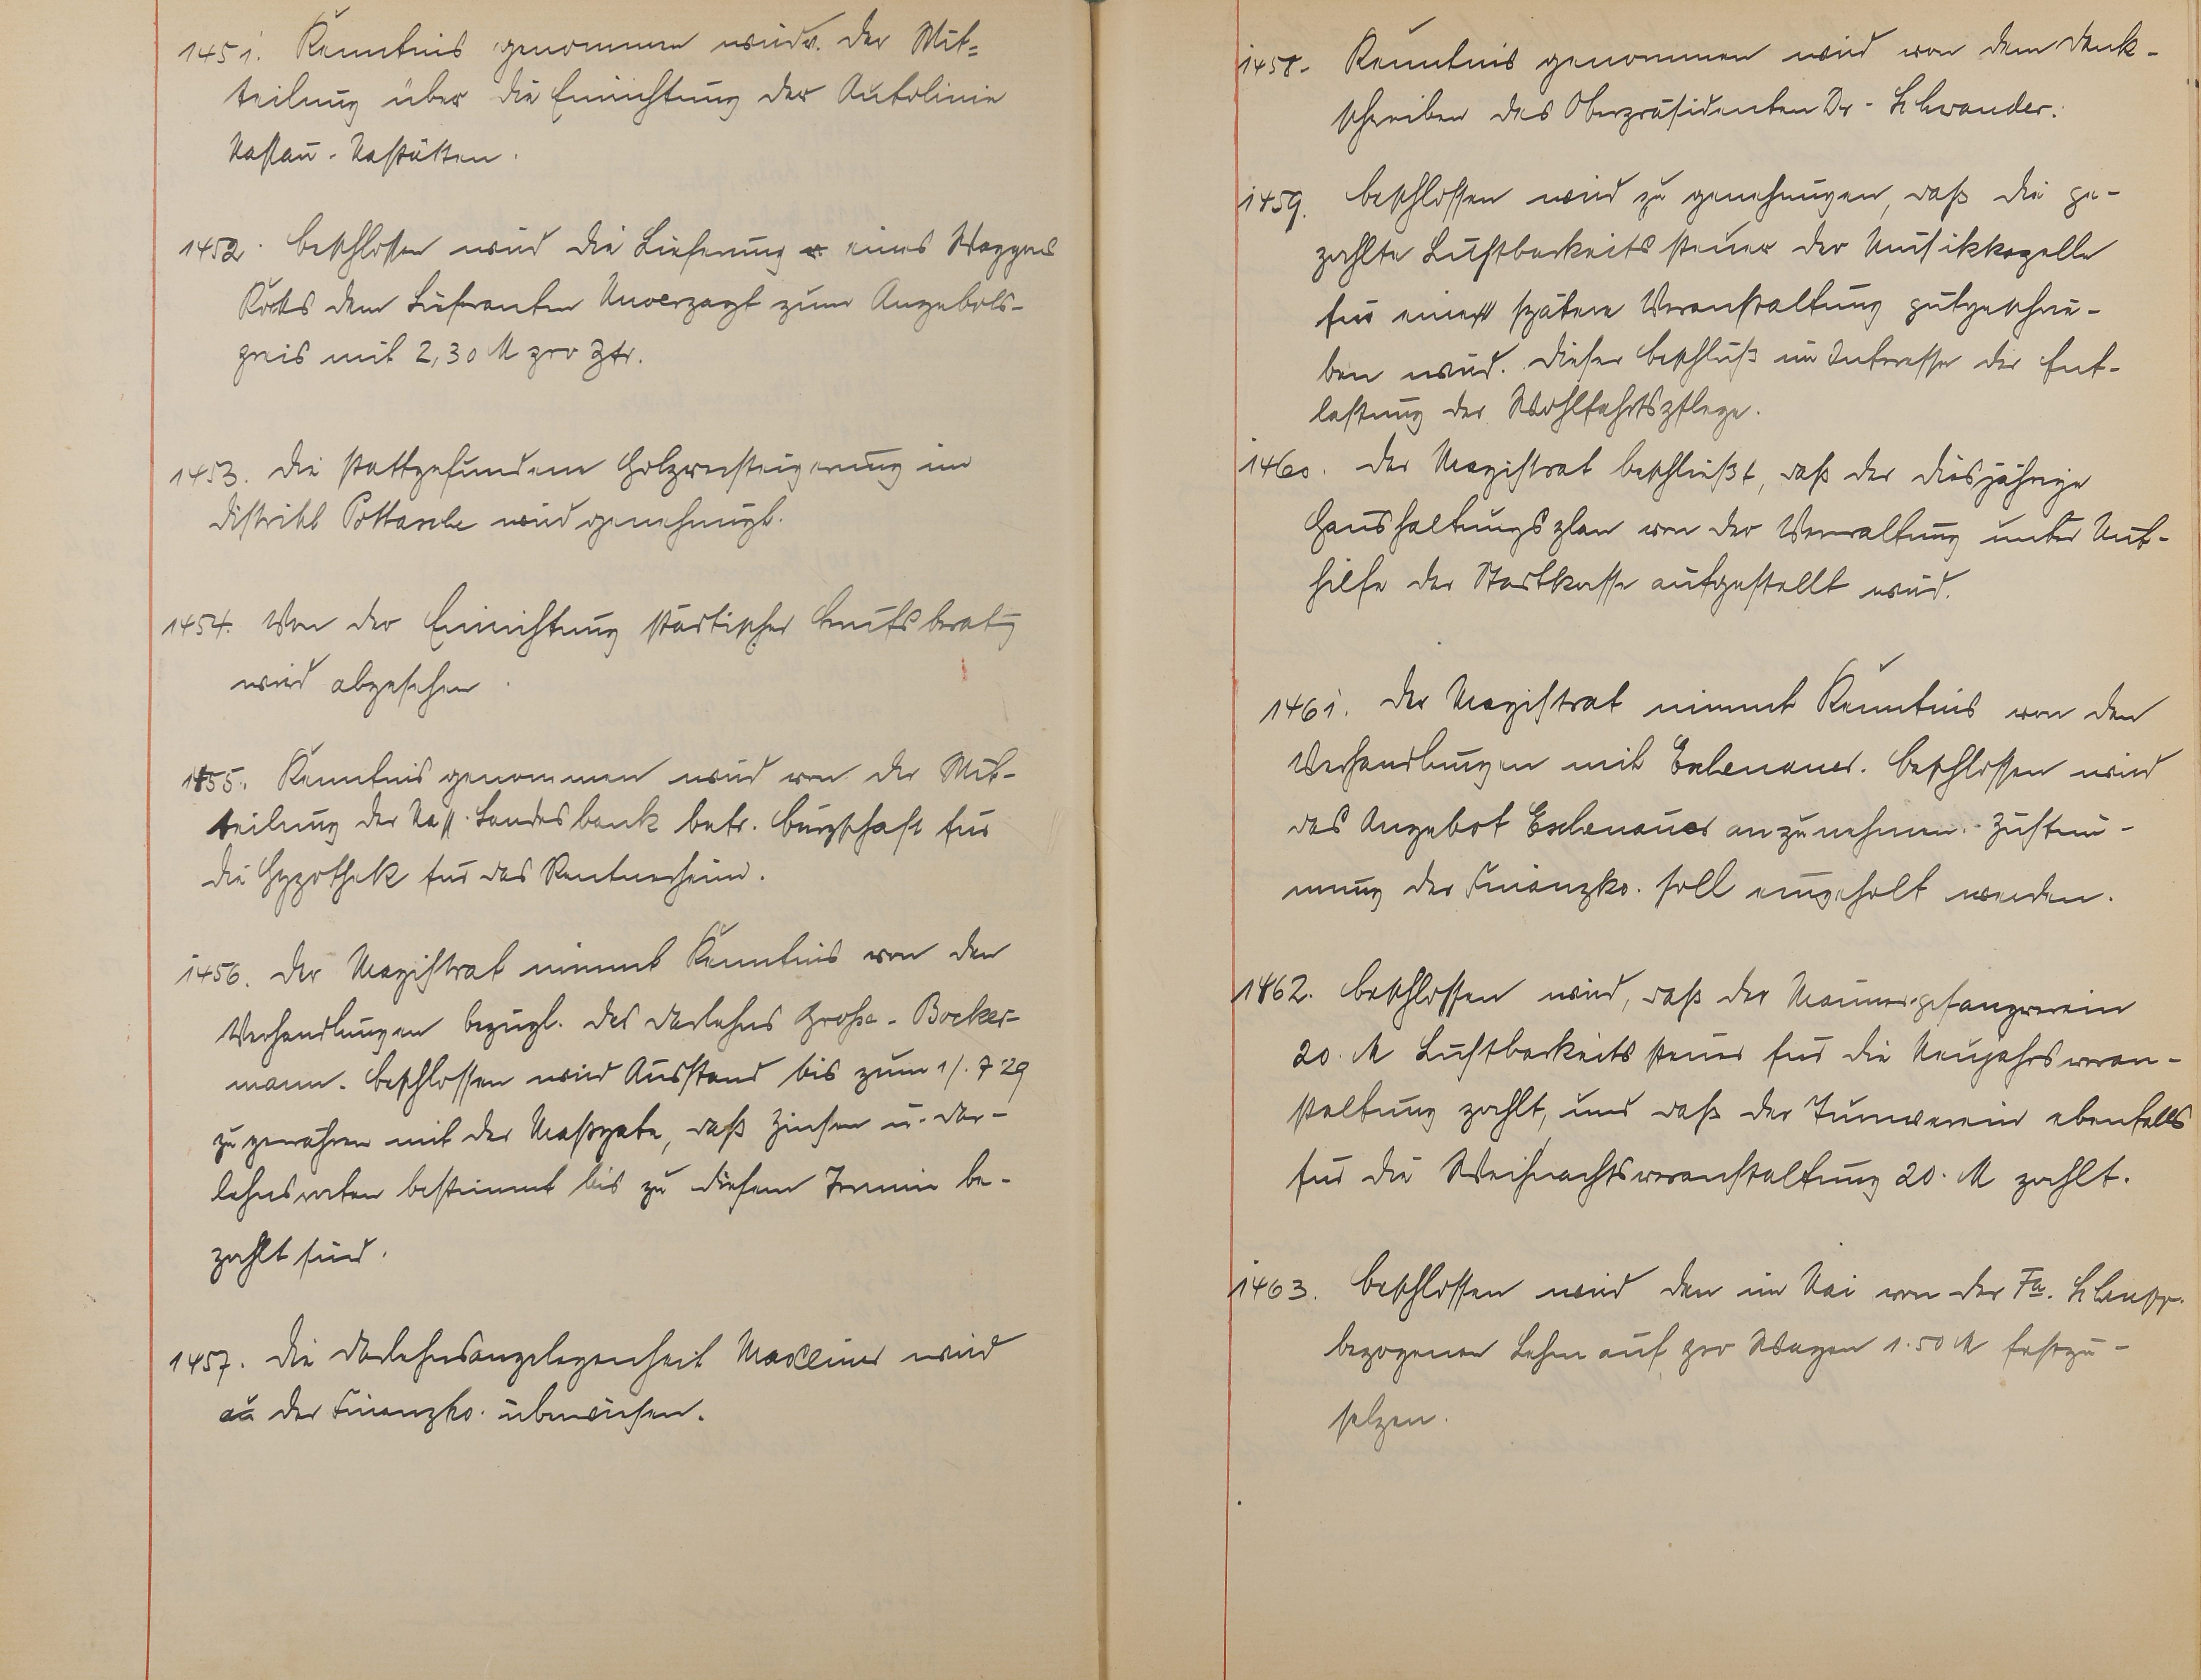 1451. Kenntnis genommen wird v. der Mit=
teilung über die Einrichtung der Autolinie
Nassau-Nastätten.
1452. Beschlossen wird die Lieferung eines Waggons
Koks dem Lieferanten Unverzagt zum Angebots-
preis mit 2,30 M pro Ztr.
1453. Die stattgefundene Holzversteigerung im
Distrikt Pottasche wird genehmigt.
1454. Von der Einrichtung städtischer Berufsberatg
wird abgesehen.
1455. Kenntnis genommen wird von der Mit-
teilung der Nass. Landesbank betr. Bürgschaft für
die Hypothek für das Rentnerheim.
1456. Der Magistrat nimmt Kenntnis von den
Verhandlungen bezügl. des Darlehns Große-Bocker-
mann. Beschlossen wird Ausstand bis zum 1/.7 29
zu gewähren mit der Maßgabe, daß Zinsen u. Dar-
lehnsraten bestimmt bis zu diesem Termin be-
zahlt sind.
1457. Die Darlehnsangelegenheit wird
an der Finanzko. überwiesen.
1458. Kenntnis genommen wird von dem Dank-
schreiben des Oberpräsidenten Dr. Schwander.
1459. Beschlossen wird zu genehmigen, daß die ge-
zahlte Lustbarkeitssteuer der Musikkapelle
für eine spätere Veranstaltung gutgeschrie-
ben wird. Dieser Beschluß im Interesse der Ent-
lastung der Wohlfahrtspflege.
1460. Der Magistrat beschließt, daß der diesjährige
Haushaltungsplan von der Verwaltung unter Mit-
hilfe der Stadtkasse aufgestellt wird.
1461. Der Magistrat nimmt Kenntnis von den
Verhandlungen mit Eschenauer. Beschlossen wird
das Angebot Eschenauer anzunehmen. Zustim-
mung der Finanzko. soll eingeholt werden.
1462. Beschlossen wird, daß der Männergesangverein
20. M Lustbarkeitssteuer für die Neujahrsveran-
staltung zahlt, und daß der Turnverein ebenfalls
für die Weihnachtsveranstaltung 20. M zahlt.
1463. Beschlossen wird den im Mai von der Fa. Schaupp.
bezogenen Lehm auf pro Wagen 1.50 M festzu-
setzen.